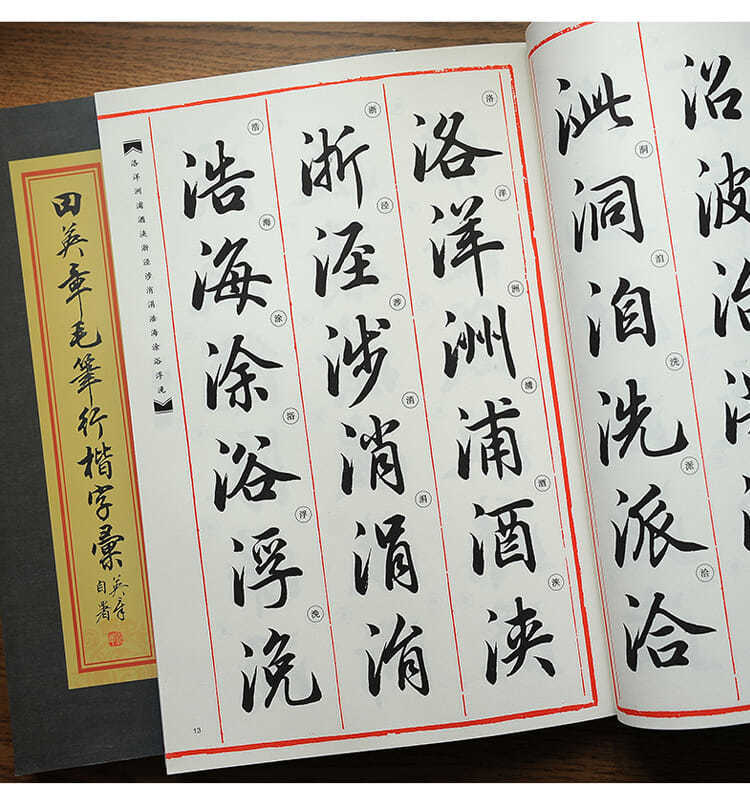 田英章毛筆行楷字彙
英章自署
沿波治
沘洞洎洗派洽
洞
洎
洗
派
洽
洛洋洲浦酒浃
洛
洋
洲
浦
酒
浃
浙泾涉消涓洧
浙
泾
涉
消
涓
浩海涂浴浮浼
浩
海
涂
浴
浮
浼
洛洋洲浦酒浃浙泾涉消涓浩海涂浴浮浼
13